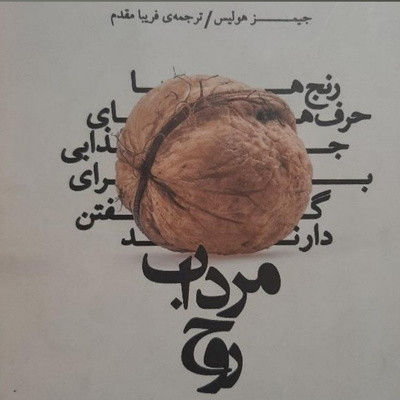 جیمز هولیس/ترجمه‌ی فریبا مقدم
رنج‌ها
حرف‌های
جذابی
برای
گفتن
دارند
مرداب
روح